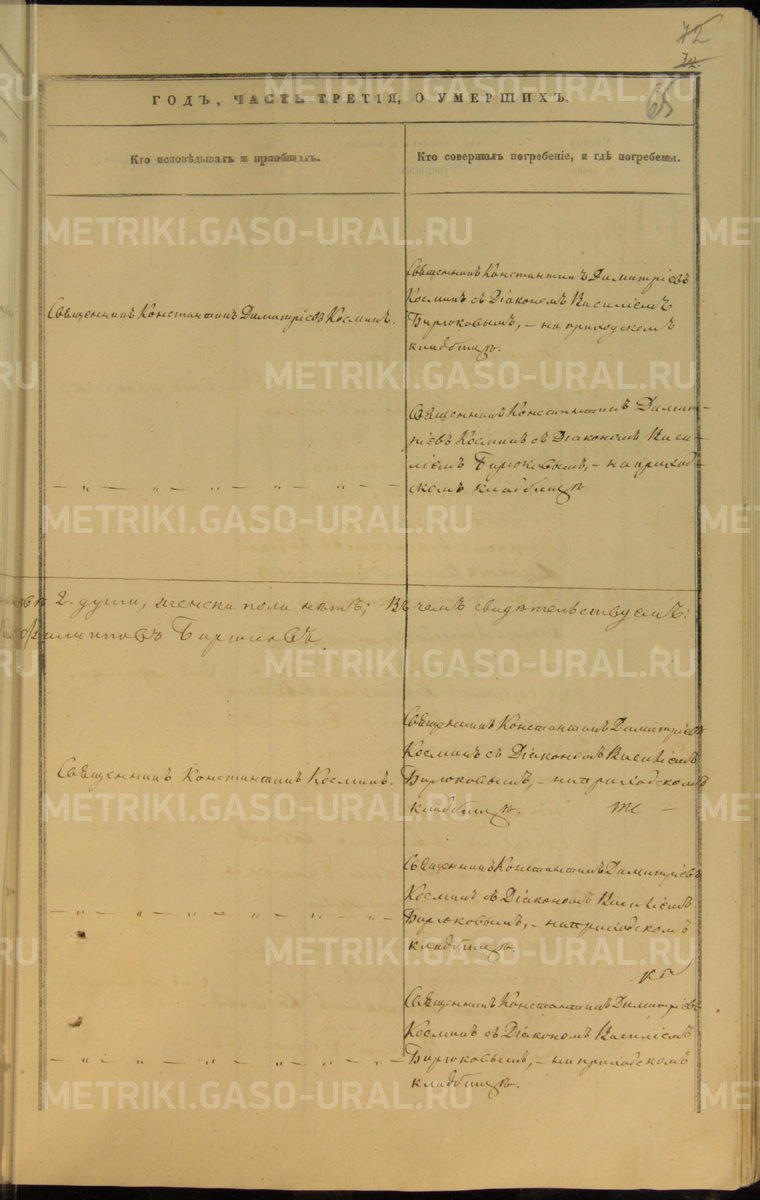 72
74
65
ГОДЪ, ЧАСТЬ ТРЕТІЯ, О УМЕРШИХЪ.
Кто исповѣдывалъ и пріобщалъ.
Кто совершалъ погребеніе, и гдѣ погребены.
Священникъ Константинъ Димитріевъ Косминъ.
Священникъ Константинъ Димитріевъ
Косминъ съ Діакономъ Василіемъ
Бирюковымъ, – на приходскомъ
кладбищѣ.
— „ — „ — „ — „ — „ —
Священникъ Константинъ Димит-
ріевъ Косминъ съ Діакономъ Васи-
ліемъ Бирюковымъ, – на приход-
скомъ кладбищѣ
2. души, женска пола нѣтъ; Въ чемъ свидѣтельствуемъ:
Филипповъ
Священникъ Константинъ Косминъ.
Священникъ Константинъ Димитріевъ
Косминъ съ Діакономъ Василіемъ
Бирюковымъ, – на приходскомъ
кладбищѣ.
— „ — „ — „ — „ — „ —
Священникъ Константинъ Димитріевъ
Косминъ съ Діакономъ Василіемъ
Бирюковымъ, – на приходскомъ
кладбищѣ.
— „ — „ — „ — „ — „ —
Священникъ Константинъ Димитріевъ
Косминъ съ Діакономъ Василіемъ
Бирюковымъ, – на приходскомъ
кладбищѣ.
METRIKI.GASO-URAL.RU